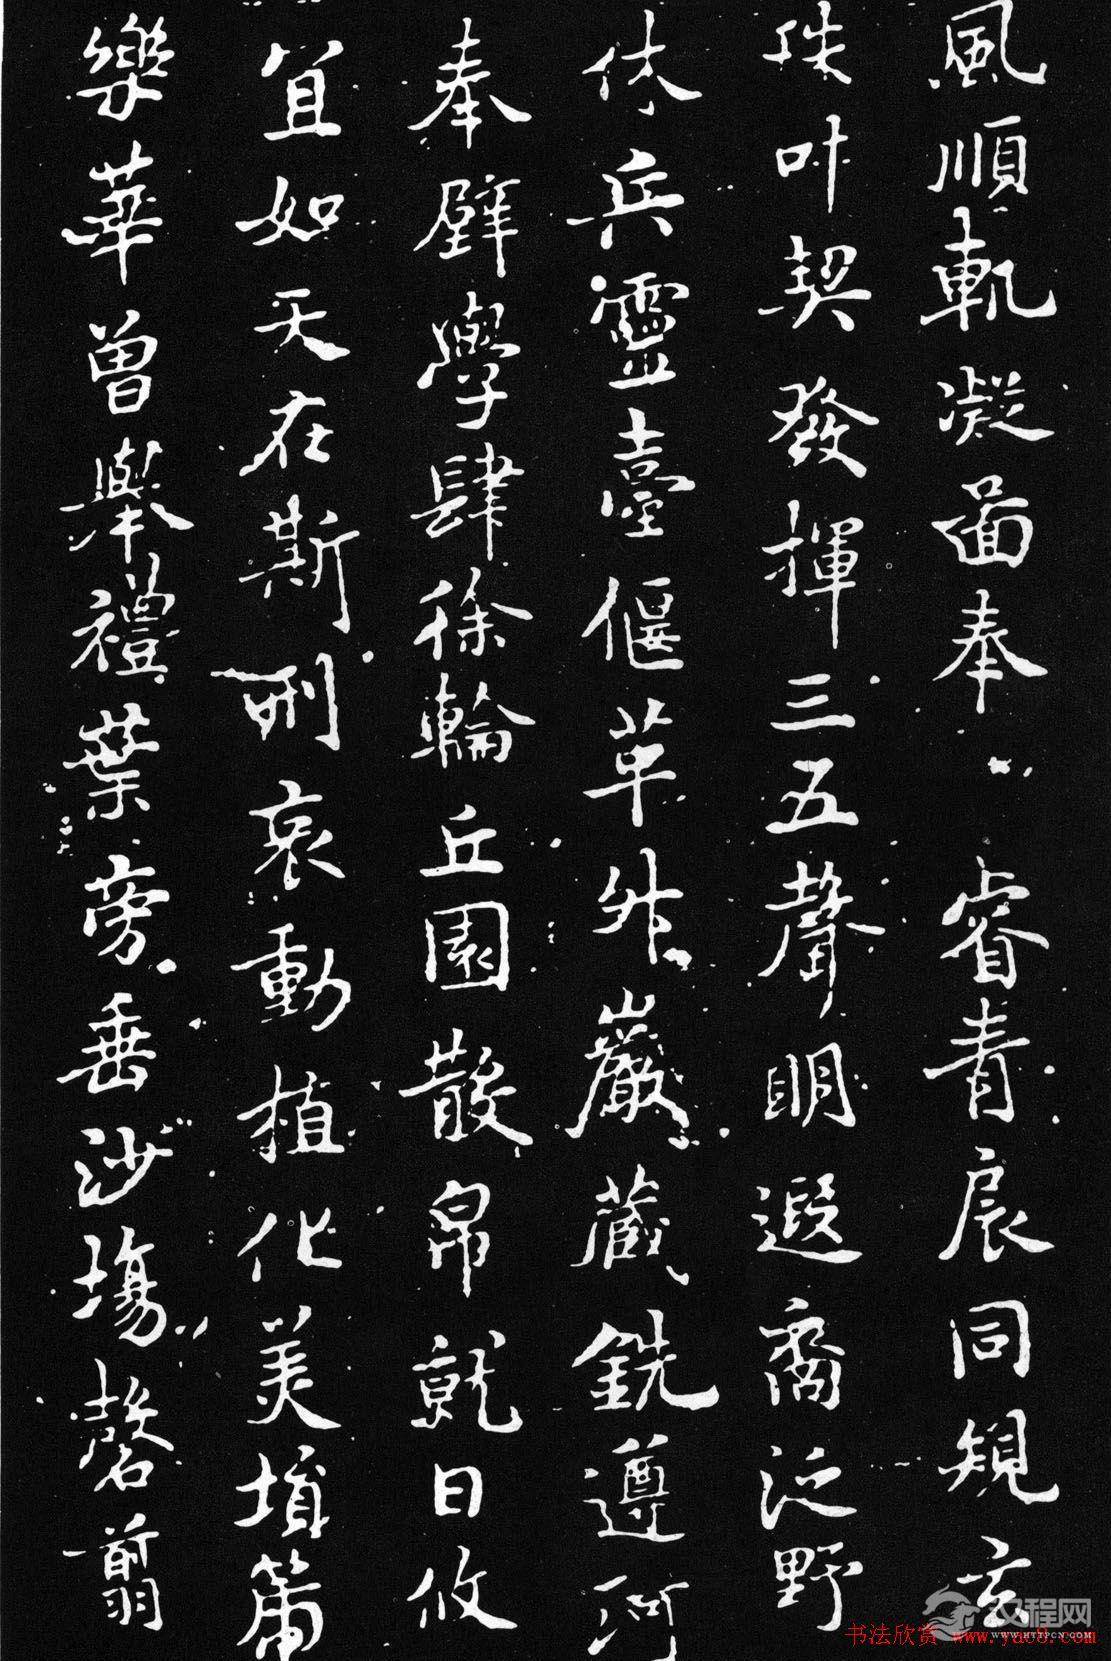 風順軌凝圖奉睿青扆同規玄
珠叶契發揮三五聲明遐裔泛野
休兵靈臺偃革外巖藏銑遵河
奉璧學肆徐輪丘園散帛就日攸
宜如天在斯刑哀動植化美塤篪
樂華曾舉禮葉旁垂沙塲罄翦
汉程网
WWW.HTTPCN.COM
书法欣赏 www.yac8.com